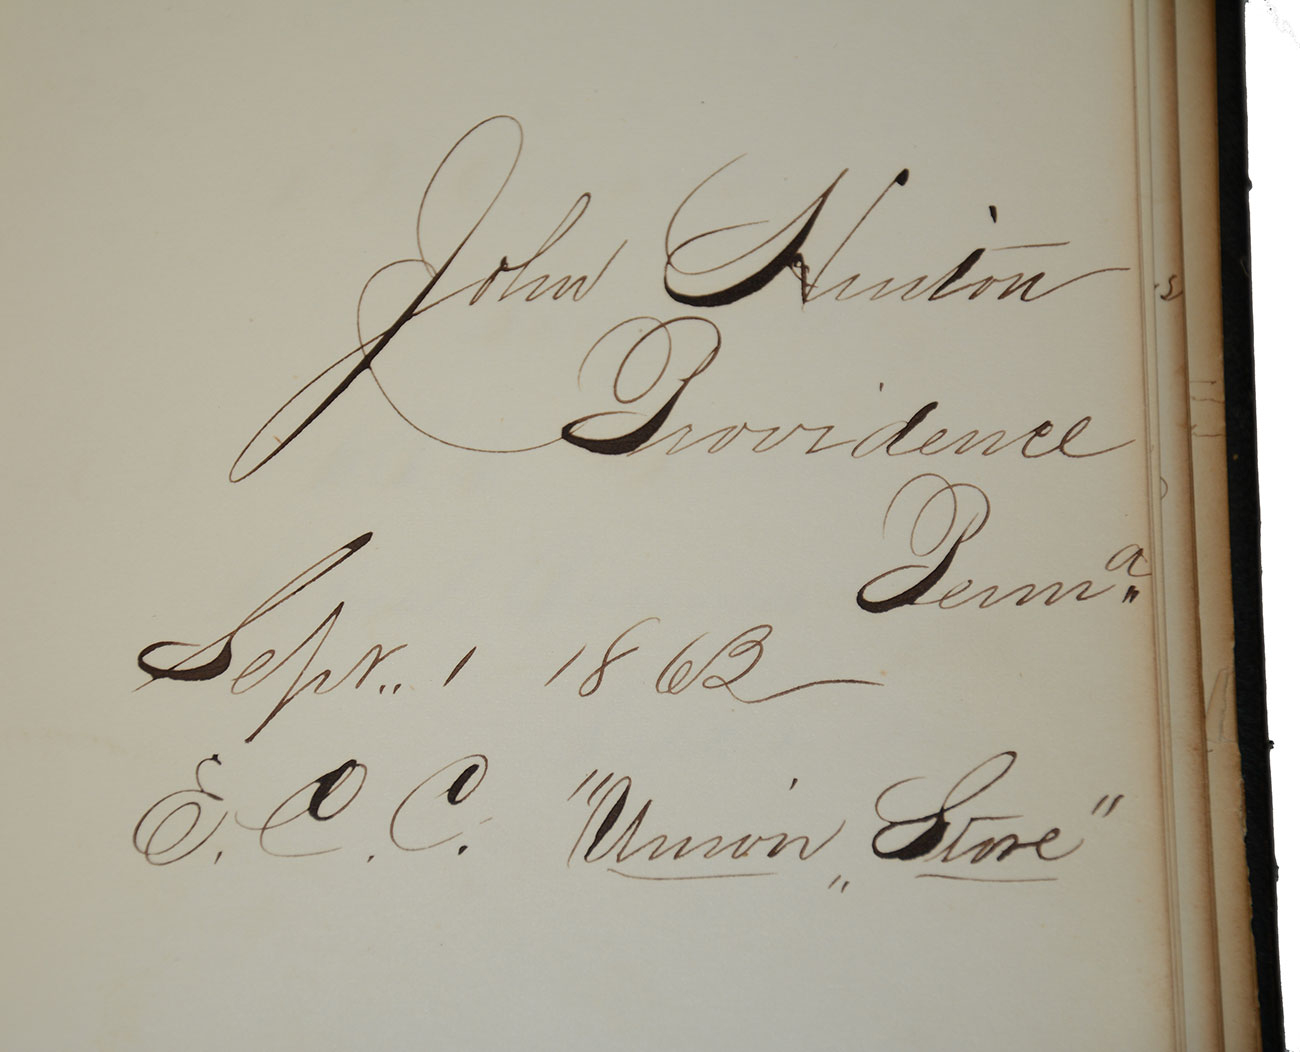 John Hinton
Providence
Penna
Sept. 1 1862
E. C. C. "Union Store"